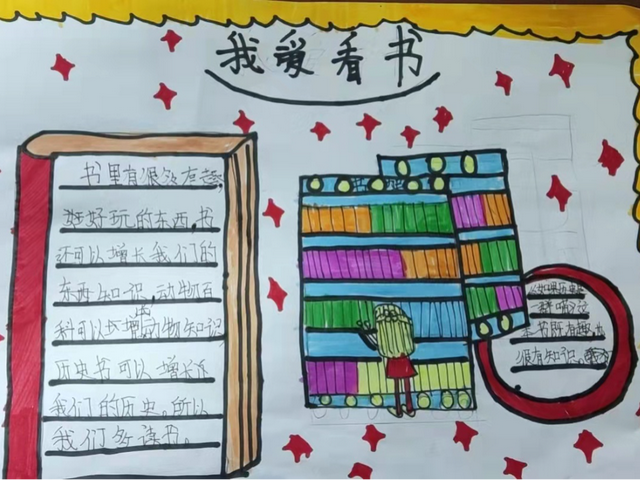 我爱看书
书里有很多有趣,
好玩的东西,书
还可以增长我们的
东西知识,动物百
科可以增加动物知识
历史书可以增长
我们的历史。所以
我们多读书。
本书既有趣
很有知识,